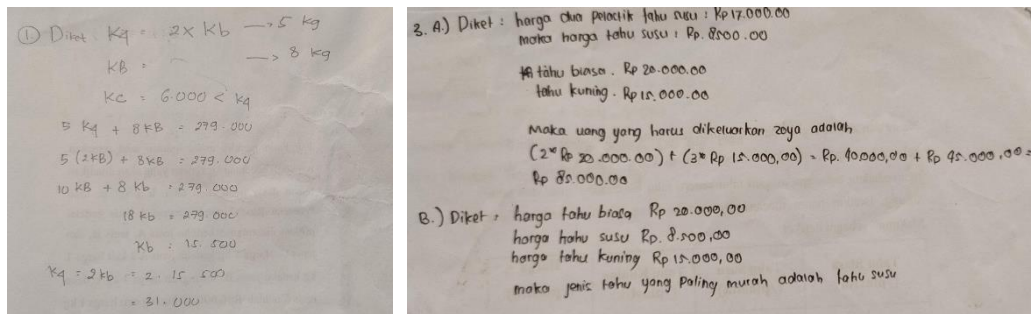 ① Diket Kq = 2 x Kb → 5 kg
KB = → 8 kg
KC = 6.000 < Kq
5 Kq + 8 KB = 279.000
5 (2KB) + 8KB = 279.000
10 KB + 8 Kb = 279.000
18 Kb = 279.000
Kb = 15.500
Kq = 2Kb = 2. 15.500
= 31.000
3. A.) Diket : harga dua pelastik tahu susu : Rp 17.000.00
maka harga tahu susu : Rp. 8500.00
tahu biasa. Rp 20.000.00
tahu kuning. Rp 15.000.00
Maka uang yang harus dikeluarkan zoya adalah
(2* Rp 20.000.00) + (3* Rp 15.000,00) = Rp. 40.000,00 + Rp 45.000,00 =
Rp 85.000.00
B.) Diket : harga tahu biasa Rp 20.000,00
harga tahu susu Rp. 8.500,00
harga tahu kuning Rp 15.000,00
maka jenis tahu yang paling murah adalah tahu susu